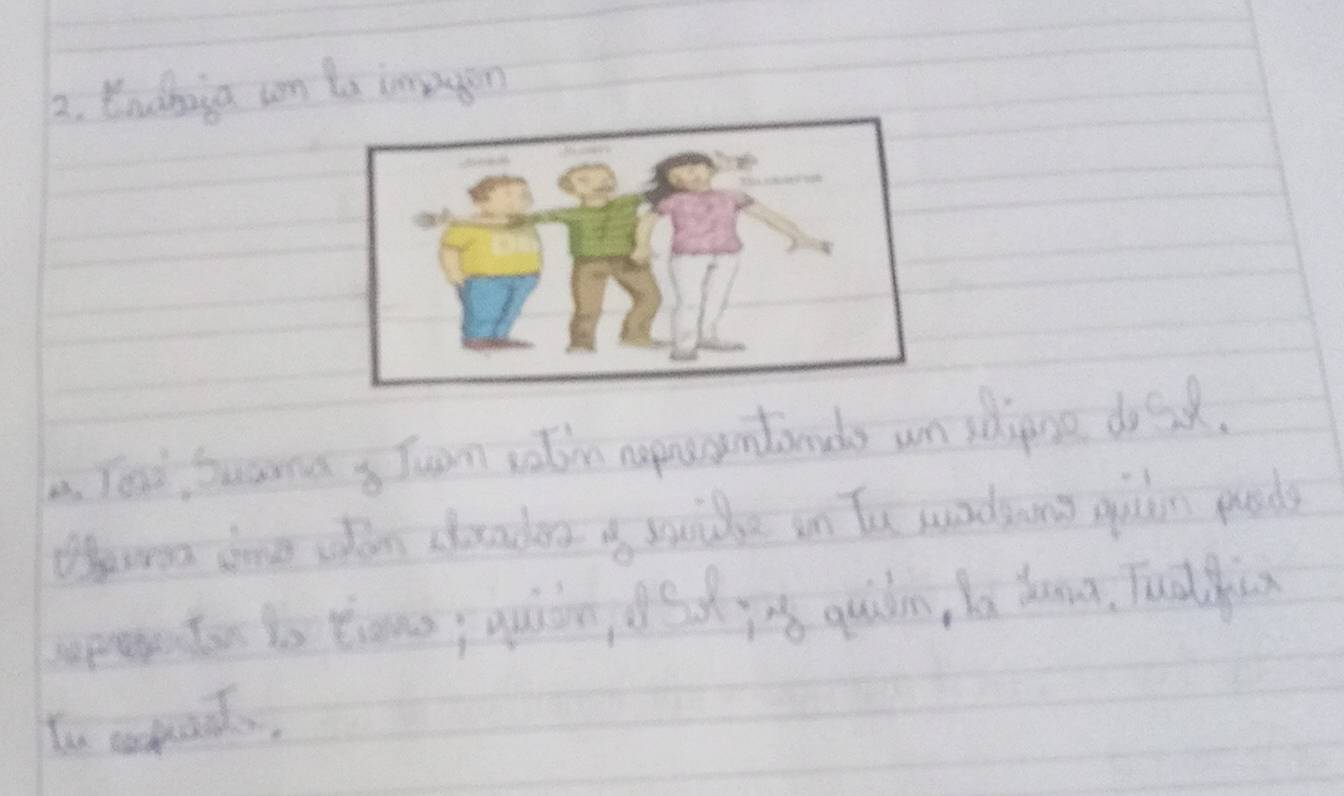 2. Trabaja con la imagen
José
Juan
Susana
a. José, Susana y Juan están representando un eclipse de Sol.
Observa cómo están ubicados y escribe en Tu cuaderno quién puede
representar la tierra; quién, el Sol; y quién, la Luna. Justifica
Tu respuesta.